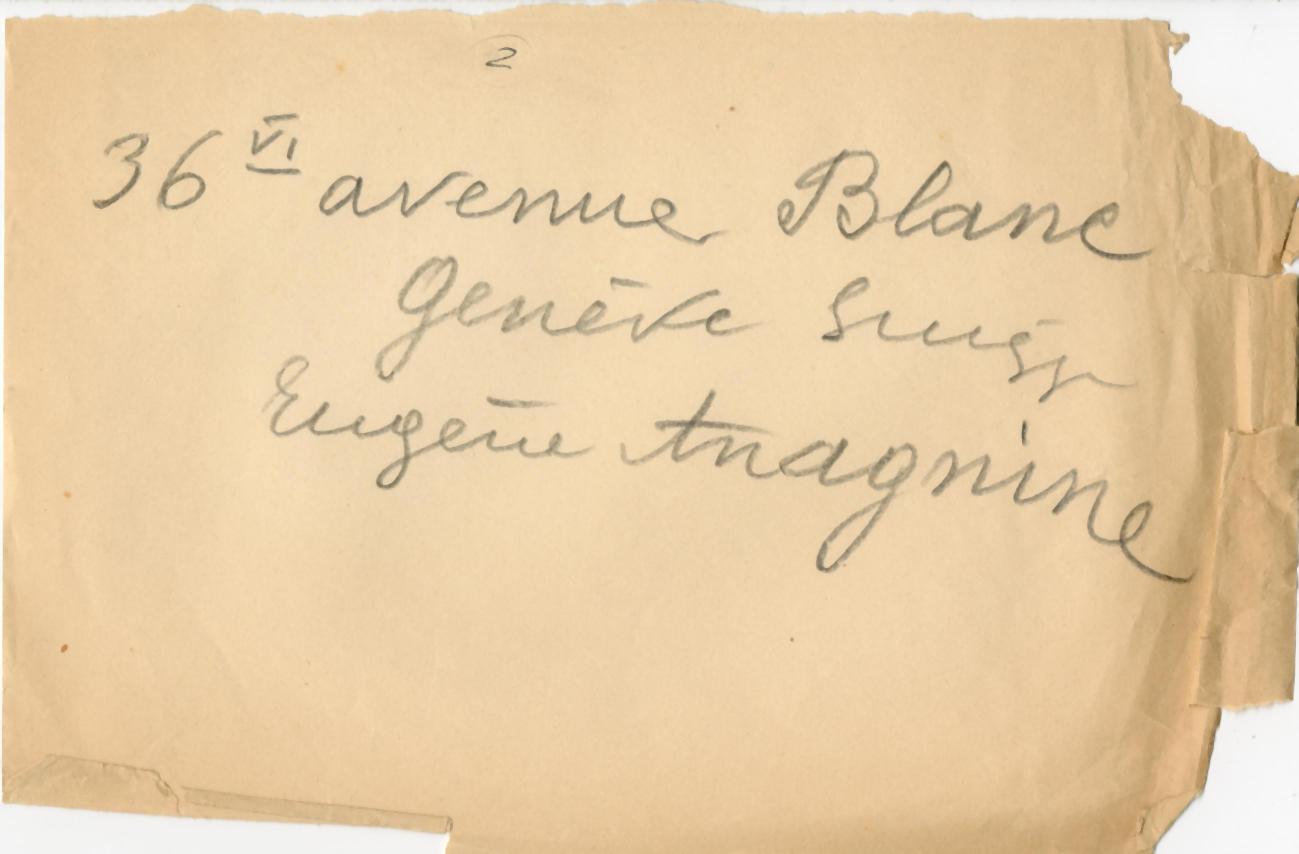 2
36 VI avenue Blanc
Genève Suisse
Eugène Anagnine